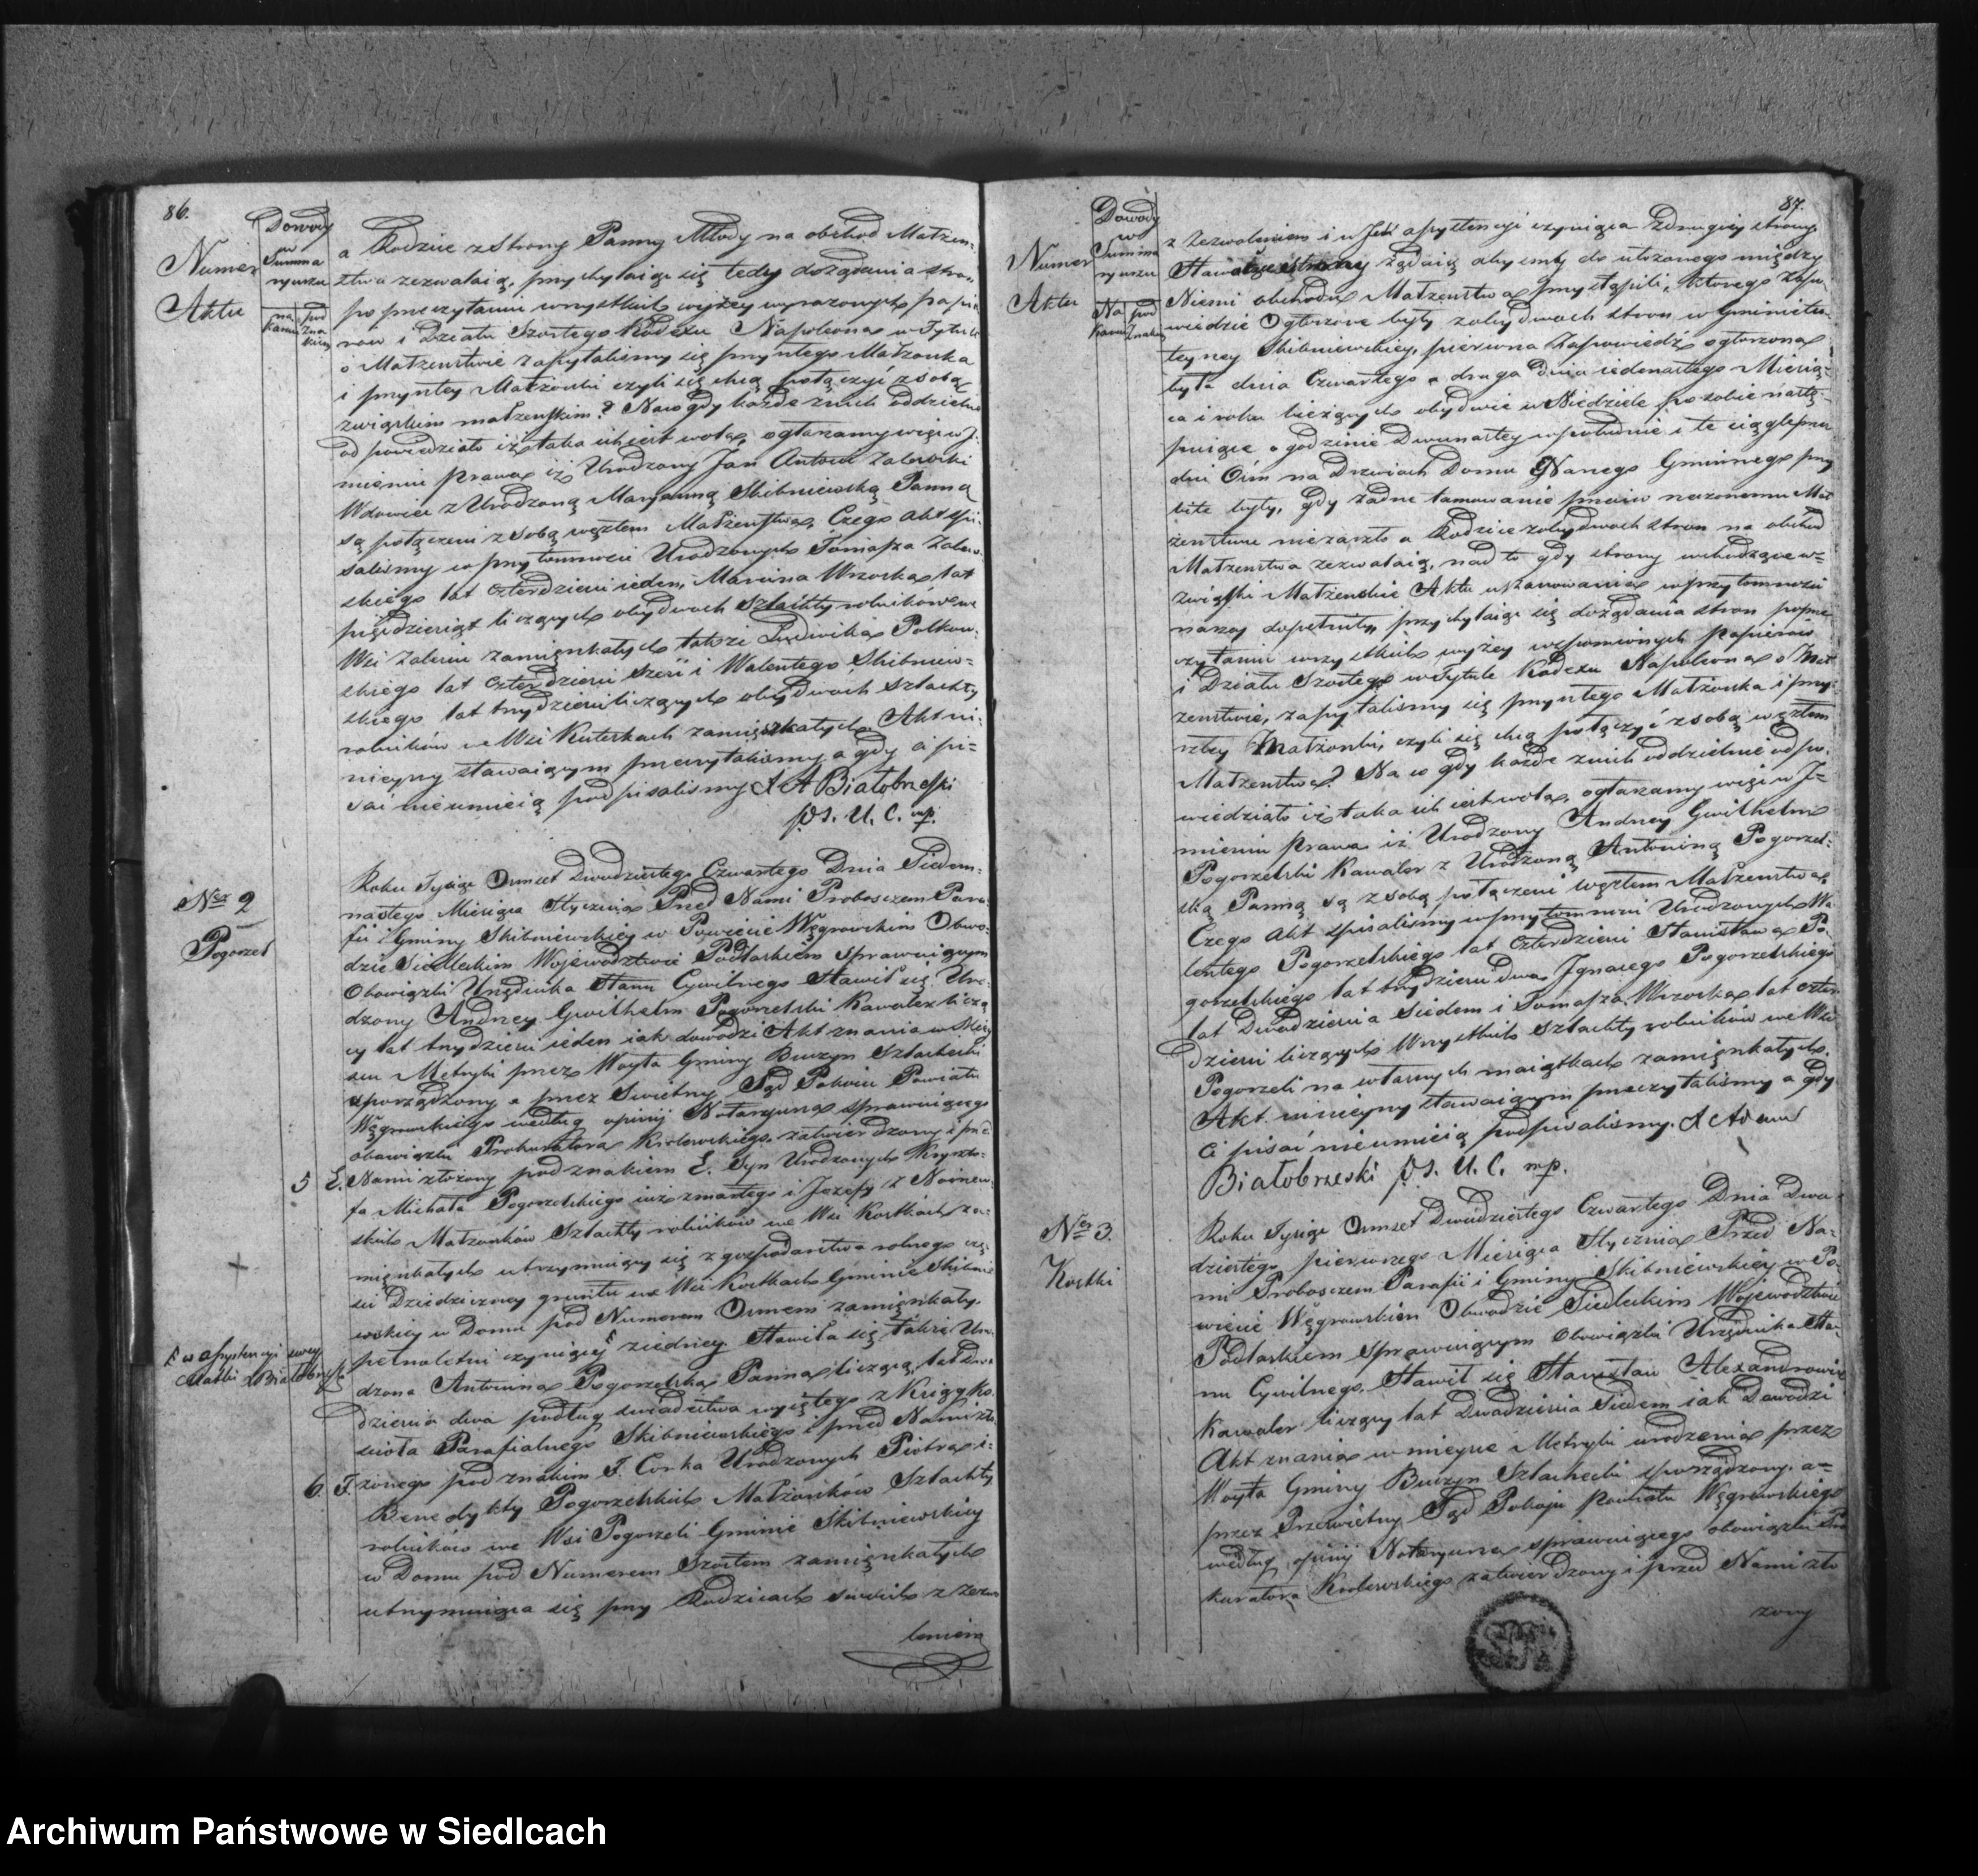 86.
Numer
Aktu
Dowody
w
Summa
ryuszu
na
Kamie
pod
Zna
kiem
a Rodzice z Strony Panny Młody na obchod Małżeń-
ztwa zezwalaią, przychylaiąc się tedy dożądania stron
po przeczytaniu wszystkich wyżey wyrażonych papie
rów i Działu Szostego Kodexu Napoleona w Tytule
o Małżenstwie zapytalismy się przyszłego Małżonka
i przyszłey Małżonki czyli się chcą połączyć z sobą
związkiem małżeńskim? Na co gdy każde z nich oddzielnie
odpowiedziało iż taka ich iest wola, ogłaszamy więc w I-
mieniu Prawa iż Urodzony Jan Antoni Zaleski
Wdowiec z Urodzoną Maryanną Skibniewską Panną
są połączeni z sobą węzłem Małżeństwa, Czego akt spi-
salismy w przytomności Urodzonych Tomasza Zalew-
skiego lat czterdziesci ieden, Marcina Wrzoska lat
pięćdziesiąt liczących obydwoch szlachty rolników we
Wsi Zaleziu zamięszkałych także Ludwika Polkow-
skiego lat czterdziesci sześć i Walentego Skibniew-
skiego lat trzydziesci liczących obydwoch szlachty
rolników we Wsi Kuterkach zamięszkałych Akt ni-
nieyszy stawaiącym przeczytalismy a gdy ci pi-
sać nieumieią podpisalismy X A Białobrzeski
ps. U. C. mp.
Ner 2
Pogorzel
Roku Tysiąc Osmset Dwudziestego Czwartego Dnia Siedem-
nastego Miesiąca Stycznia Przed Nami Proboszczem Para-
fii i Gminy Skibniewskiey w Powiecie Węgrowskim Obwo-
dzie Siedleckim Woiewodztwie Podlaskiem sprawuiącym
Obowiązki Urzędnika Stanu Cywilnego Stawił się Uro-
dzony Andrzey Gwilhelm Pogorzelski Kawaler liczą
cy lat trzydziesci ieden iak dowodzi Akt znania w Miey
scu Metryki przez Woyta Gminy Buczyn Szlachecki
sporządzony a przez Swietny Sąd Pokoiu Powiatu
Węgrowskiego według opinij Notaryusza sprawuiącego
obowiązki Prokuratora Krolewskiego zatwierdzony i przed
5 E. Nami złożony pod znakiem E. Syn Urodzonych Krzyszto-
fa Michała Pogorzelskiego iuż zmarłego i Jozefy z
skich Małżonków Szlachty rolników we Wsi Kostkach za-
mięszkałych utrzymuiący się z gospodarstwa rolnego czę-
sci Dziedziczney gruntu we Wsi Kostkach Gminie Skibnie
wskiey w Domu pod Numerem Osmem zamięszkały.
pełnoletni czyniący ziedney. Stawiła się także Uro-
w assystencyi swey
Matki X Białobrzeski
dzona Antonina Pogorzelska Panna licząca lat dwa-
dziescia dwa podług swiadectwa wyiętego z Księgi Ko-
scioła Parafialnego Skibniewskiego i przed Nami zło-
6. F. żonego pod znakiem F. Corka Urodzonych Piotra i
Benedykty Pogorzelskich Małżonków Szlachty
rolników we Wsi Pogorzeli Gminie Skibniewskiey
w Domu pod Numerem Szostem zamięszkałych
utrzymuiąca się przy Rodzicach swoich z zezwo
leniem
87.
Numer
Aktu
Dowody
w
Summa
ryuszu
Na
Kamie
pod
Znakiem
z zezwoleniem i w Ich assystencyi czyniąca zdrugiey strony
Stawaiące strony żądaią abysmy do ułożonego między
Niemi obchodu Małżenstwa przystąpili, którego Zapo-
wiedzie Ogłoszone były zobydwoch stron w Gminie tu-
teyszey Skibniewskiey, pierwsza Zapowiedź ogłoszona
była dnia Czwartego a druga Dnia iedenastego Miesią-
ca i roku bieżących obydwie w Niedziele po sobie nastę-
puiące o godzinie Dwunastey wpołudnie i te ciągle przez
dni Osm na Drzwiach Domu Naszego Gminnego przy
bite były, gdy żadne tamowanie przeciw rzeczonemu Mał
żenstwu niezaszło a Rodzice zobydwoch stron na obchod
Małżenstwa zezwalaią, nad to gdy strony wchodzące w
związki Małżenskie Aktu uszanowania wprzytomności
naszey dopełniły, przychylaiąc się dożądania stron po prze
czytaniu wszystkich wyżey wspomnionych Papierów
i Działu Szostego w Tytule Kodexu Napoleona o Mał
żenstwie, zapytalismy się przyszłego Małżonka i przy-
szłey Małżonki, czyli się chcą połączyć z sobą węzłem
Małżenstwa? Na co gdy każde znich oddzielnie odpo-
wiedziało iż taka ich iest wola, ogłaszamy więc w I-
mieniu Prawa iż Urodzony Andrzey Gwilhelm
Pogorzelski Kawaler z Urodzoną Antoniną Pogorzel-
ską Panną są z sobą połączeni węzłem Małżenstwa
Czego akt spisalismy wprzytomności Urodzonych Wa
lentego Pogorzelskiego lat Czterdziesci Stanisława Po-
gorzelskiego lat trzydziesci dwa Ignacego Pogorzelskiego
lat Dwadziescia Siedem i Tomasza Wrzoska lat czter
dziesci liczących Wszystkich szlachty rolników we Wsi
Pogorzeli na własnych maiątkach zamięszkałych.
Akt ninieyszy stawaiącym przeczytalismy a gdy
ci pisać nieumieią podpisalismy. X Adam
Białobrzeski ps. U. C. mp.
Ner 3.
Kostki
Roku Tysiąc Osmset Dwudziestego Czwartego Dnia Dwu-
dziestego pierwszego Miesiąca Stycznia Przed Na-
mi Proboszczem Parafii i Gminy Skibniewskiey w Po-
wiecie Węgrowskim Obwodzie Siedleckim Woiewodztwie
Podlaskiem sprawuiącym Obowiązki Urzędnika Sta-
nu Cywilnego, Stawił się Stanisław Alexandrowicz
Kawaler liczący lat Dwadziescia Siedem iak Dowodzi
Akt znania w mieysce Metryki urodzenia przez
Woyta Gminy Buczyn Szlachecki sporządzony. a
przez Prześwietny Sąd Pokoju Powiatu Węgrowskiego
według opinij Notaryusza sprawuiącego obowiązki Pro
kuratora Krolewskiego zatwierdzony i przed Nami zło
zony
Archiwum Państwowe w Siedlcach